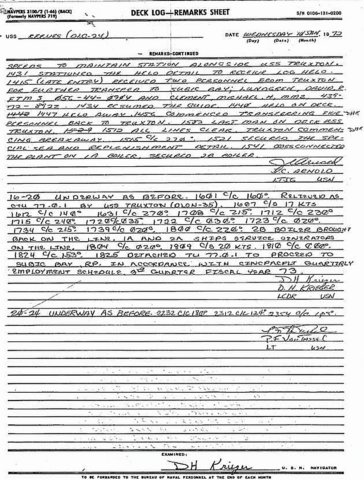 NAVPERS 3100/2 (1-66) (BACK)
(Formerly NAVPERS 719)
DECK LOG—REMARKS SHEET
S/N 0106-131-0200
USS REEVES (DLG-24) DATE WEDNESDAY 72
(Day) (Date) (Month)
REMARKS—CONTINUED
SPEEDS TO MAINTAIN STATION ALONGSIDE USS TRUXTUN.
1431 STATIONED THE HELO DETAIL TO RECEIVE LOG HELO.
1415 (LATE ENTRY) RECEIVED TWO PERSONNEL FROM TRUXTUN
FOR FURTHER TRANSFER TO SUBIC BAY; LUNDGREN, DAVID R.
AND CLEMENT, MICHAEL H.
1434 RESUMED THE GUIDE. 1440 HELO ON DECK
1447 HELO AWAY. COMMENCED TRANSFERRING FIVE
PERSONNEL BACK TO TRUXTUN. LAST MAN ON DECK USS
TRUXTUN. 1512 ALL LINES CLEAR, TRUXTUN COMMENCING
BREAKAWAY. 1515 C/C 220°. 1521 SECURED THE SPECIAL
SEA AND REPLENISHMENT DETAIL. 1541 CROSSCONNECTED
THE PLANT ON 1A BOILER, SECURED 2A BOILER.
D.C. ARNOLD
LTJG USN
16-20 UNDERWAY AS BEFORE. 1601 C/C 160°. RELIEVED AS
CTU 77.0.1 BY USS TRUXTUN (DLGN-35). 1607 C/S 17 KTS
1612 C/C 140° 1631 C/C 270° 1708 C/C 215° 1712 C/C 230°
1715 C/C 240° 1722 C/C 030° 1723 C/C 020°
1734 C/C 215° 1739 C/C 020°, 1800 C/C 220° 2B BOILER BROUGHT
BACK ON THE LINE, 1A AND 2A SHIPS SERVICE GENERATORS
ON THE LINE, 1804 C/C 020°, 1809 C/S 20 KTS 1810 C/C 080°.
1824 C/C 153°. 1825 DETACHED TU 77.0.1 TO PROCEED TO
SUBIC BAY, R.P. IN ACCORDANCE WITH CINCPACFLT QUARTERLY
EMPLOYMENT SCHEDULE, 3RD QUARTER FISCAL YEAR 73.
D. H. KRIEGER
LCDR USN
20-24 UNDERWAY AS BEFORE. 2232 C/C 130° 2312 C/C 129°
LT USN
EXAMINED:
DH Krieger U. S. N. NAVIGATOR
TO BE FORWARDED TO THE BUREAU OF NAVAL PERSONNEL AT THE END OF EACH MONTH